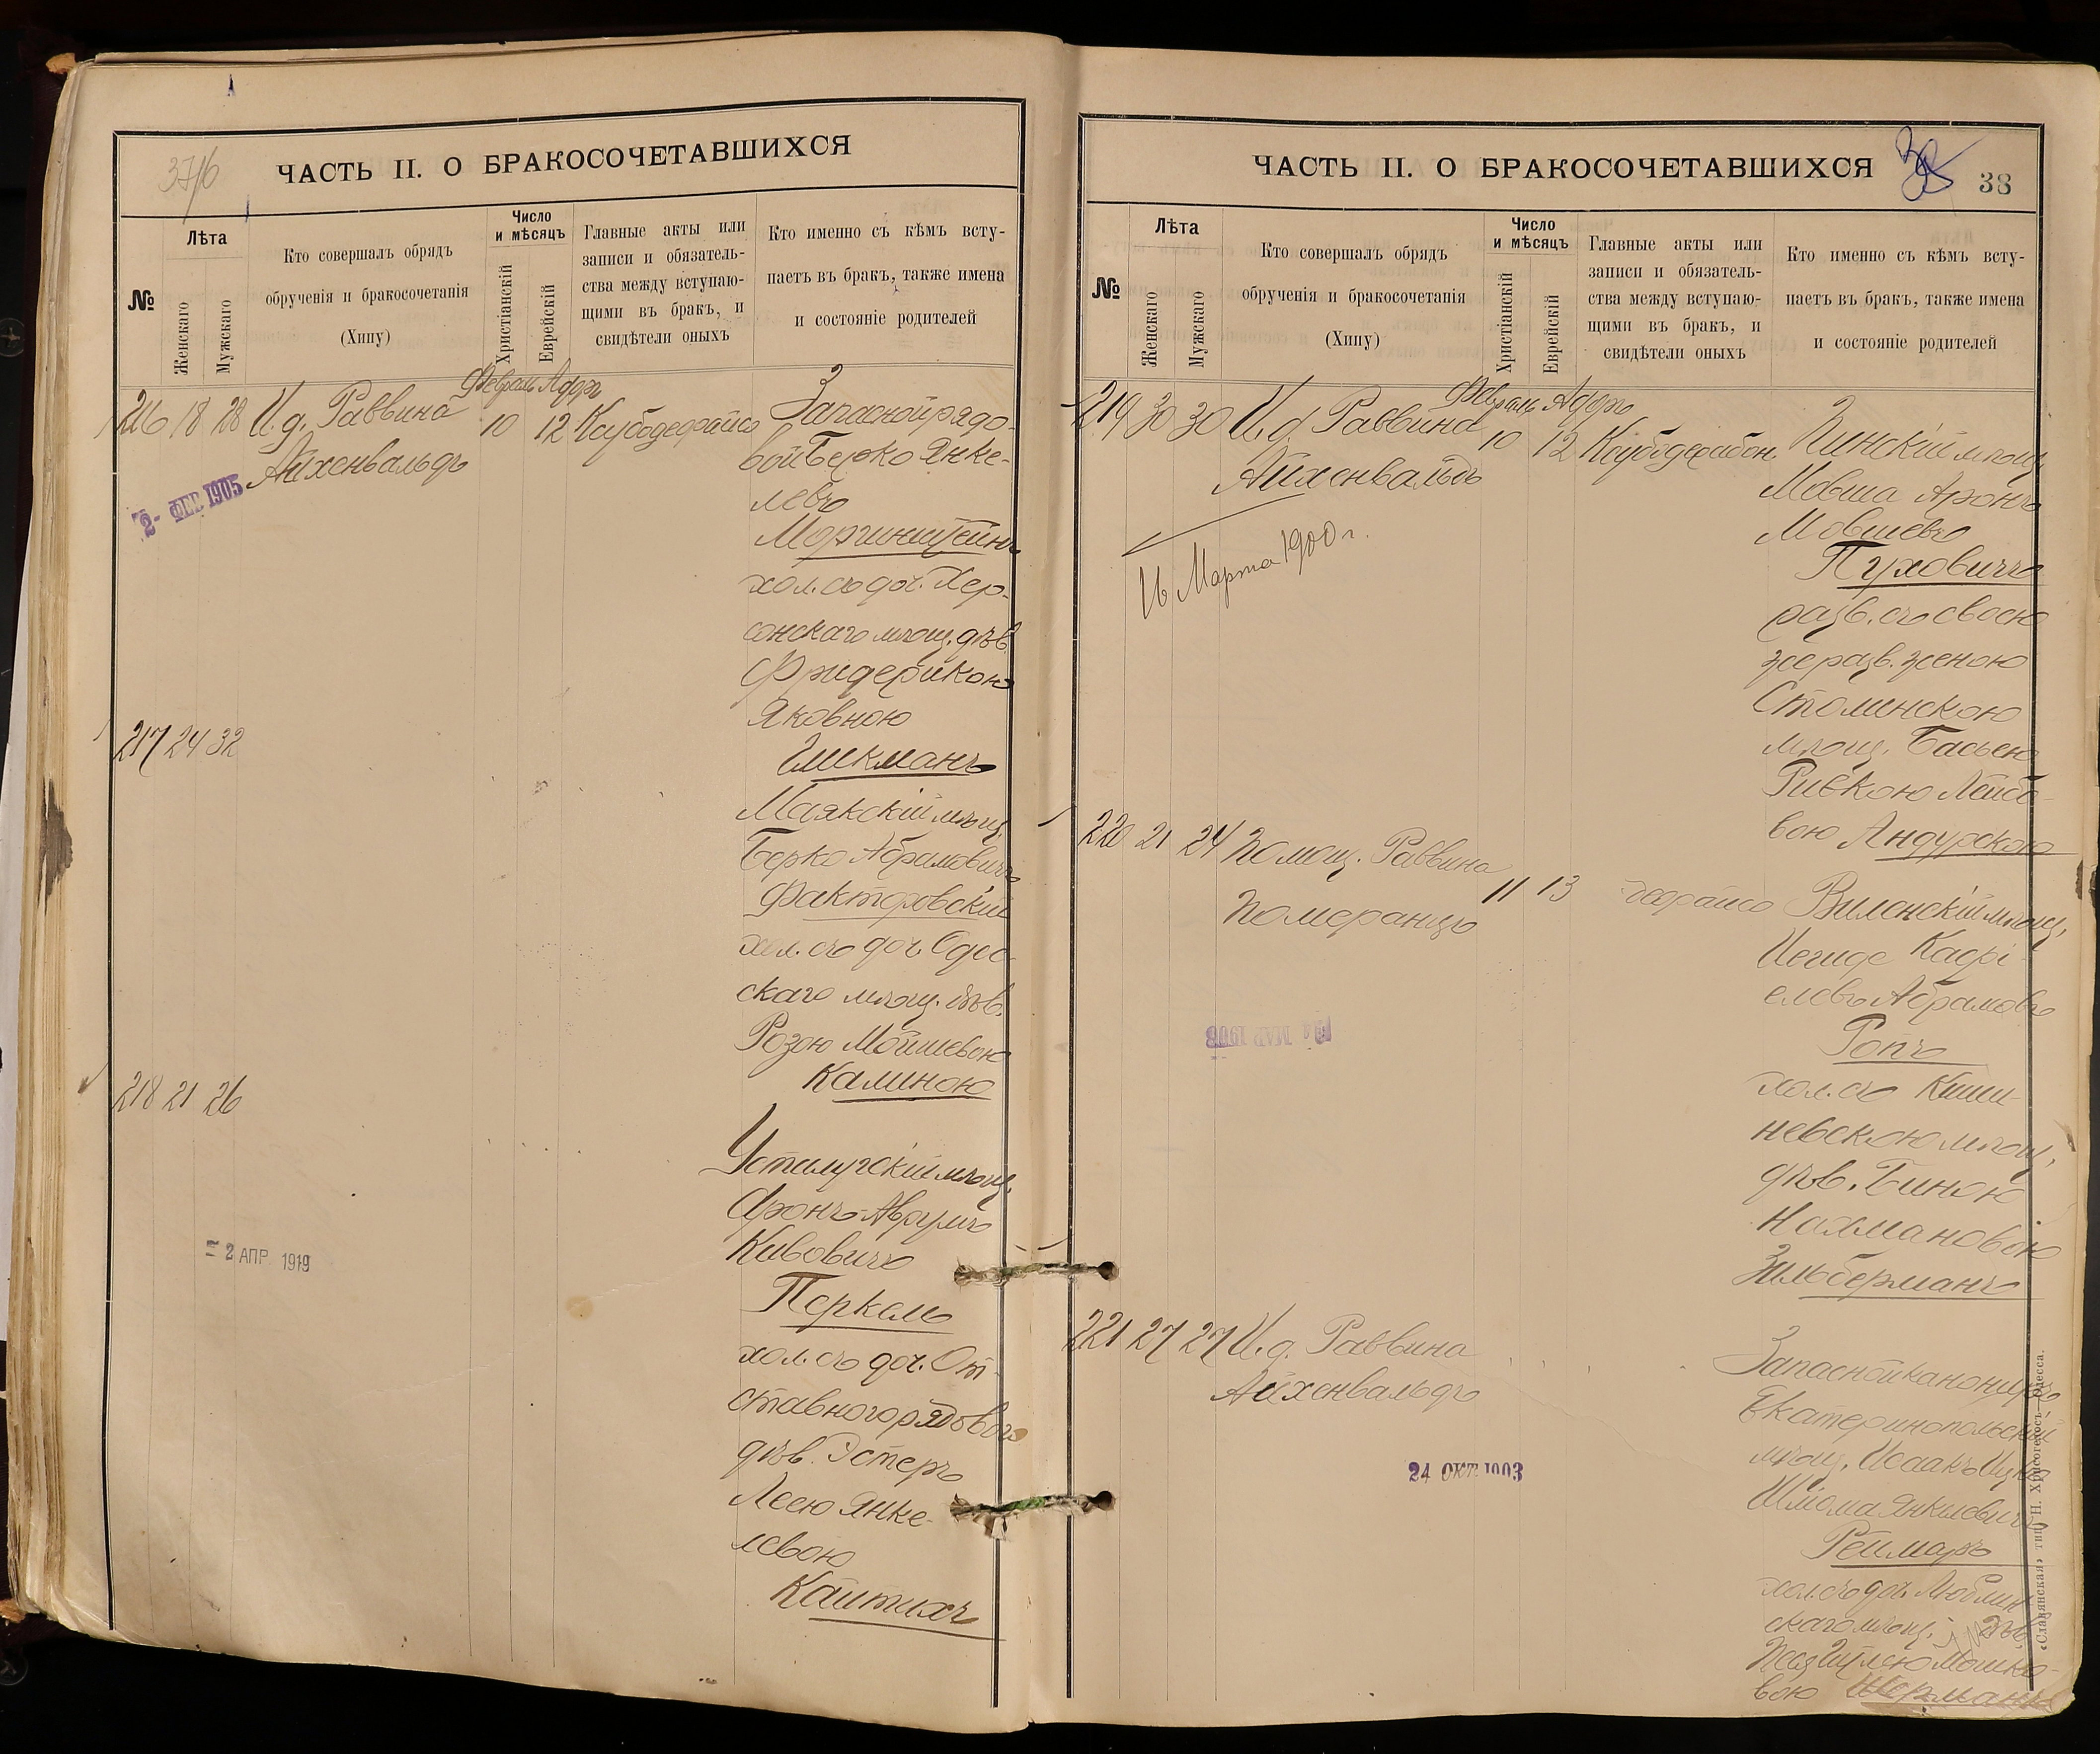 37/6
ЧАСТЬ II. О БРАКОСОЧЕТАВШИХСЯ
№
Лѣта
Женскаго
Мужскаго
Кто совершалъ обрядъ
обрученія и бракосочетанія
(Хипу)
Число
и мѣсяцъ
Христіанскій
Еврейскій
Главные акты или
записи и обязатель-
ства между вступаю-
щими въ бракъ, и
свидѣтели оныхъ
Кто именно съ кѣмъ всту-
паетъ въ бракъ, также имена
и состояніе родителей
Февраль Адаръ
216 18 28 И. д. Раввина 10 12
Айхенвальдъ
2- ФЕВ 1905
Запасной рядо-
вой Берко Янке-
левъ
Моргинштейнъ
хол. съ доч. Хер-
сонскаго мѣщ. дѣв.
Фридерикою
Яковною
Гликманъ
217 24 32
Маякскій мѣщ.
Берко Абрамовичъ
Факторовскій
хол. съ доч. Одес-
скаго мѣщ. дѣв.
Розою Мойшевою
Калиною
218 21 26
Устилугскій мѣщ.
Аронъ-Аврумъ
Кивовичъ
Перкель
хол. съ доч. От-
ставного рядового
дѣв. Эстеръ
Леею Янке-
левою
Каштихъ
= 2 АПР. 1919
ЧАСТЬ II. О БРАКОСОЧЕТАВШИХСЯ
38
№
Лѣта
Женскаго
Мужскаго
Кто совершалъ обрядъ
обрученія и бракосочетанія
(Хипу)
Число
и мѣсяцъ
Христіанскій
Еврейскій
Главные акты или
записи и обязатель-
ства между вступаю-
щими въ бракъ, и
свидѣтели оныхъ
Кто именно съ кѣмъ всту-
паетъ въ бракъ, также имена
и состояніе родителей
Февраль Адаръ
219 30 30 И. д. Раввина 10 12
Айхенвальдъ
16 Марта 1900 г.
Пинскій мѣщ.
Мовша Аронъ
Мовшевъ
Пуховичъ
разв. съ своею
же разв. женою
Столинскою
мѣщ. Басьею
Ривкою Лейбо-
вою Андурскою
220 21 24 Помощ. Раввина 11 13
Померанцъ
МАР 1903
Виленскій мѣщ.
Иегуде Кадрі-
елевъ Абрамовъ
Ропъ
хол. съ Киши-
невскою мѣщ.
дѣв. Бинею
Нахмановою
Зильберманъ
221 27 27 И. д. Раввина
Айхенвальдъ
24 ОКТ 1903
Запасной канониръ
Екатеринопольскій
мѣщ. Исаакъ Ицко
Шлома Янкелевичъ
Реймаръ
хол. съ доч. Люблин-
скаго мѣщ. дѣв.
Мошко-
вою Шерманъ
«Славянская» тип. Н. Хрисогелосъ—Одесса.